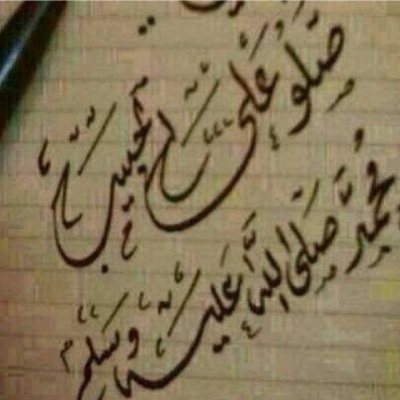 صَلّوا عَلَى الحَبيب
مُحَمَّد صَلَّى اللّه عَلَيه وَسَلَّم